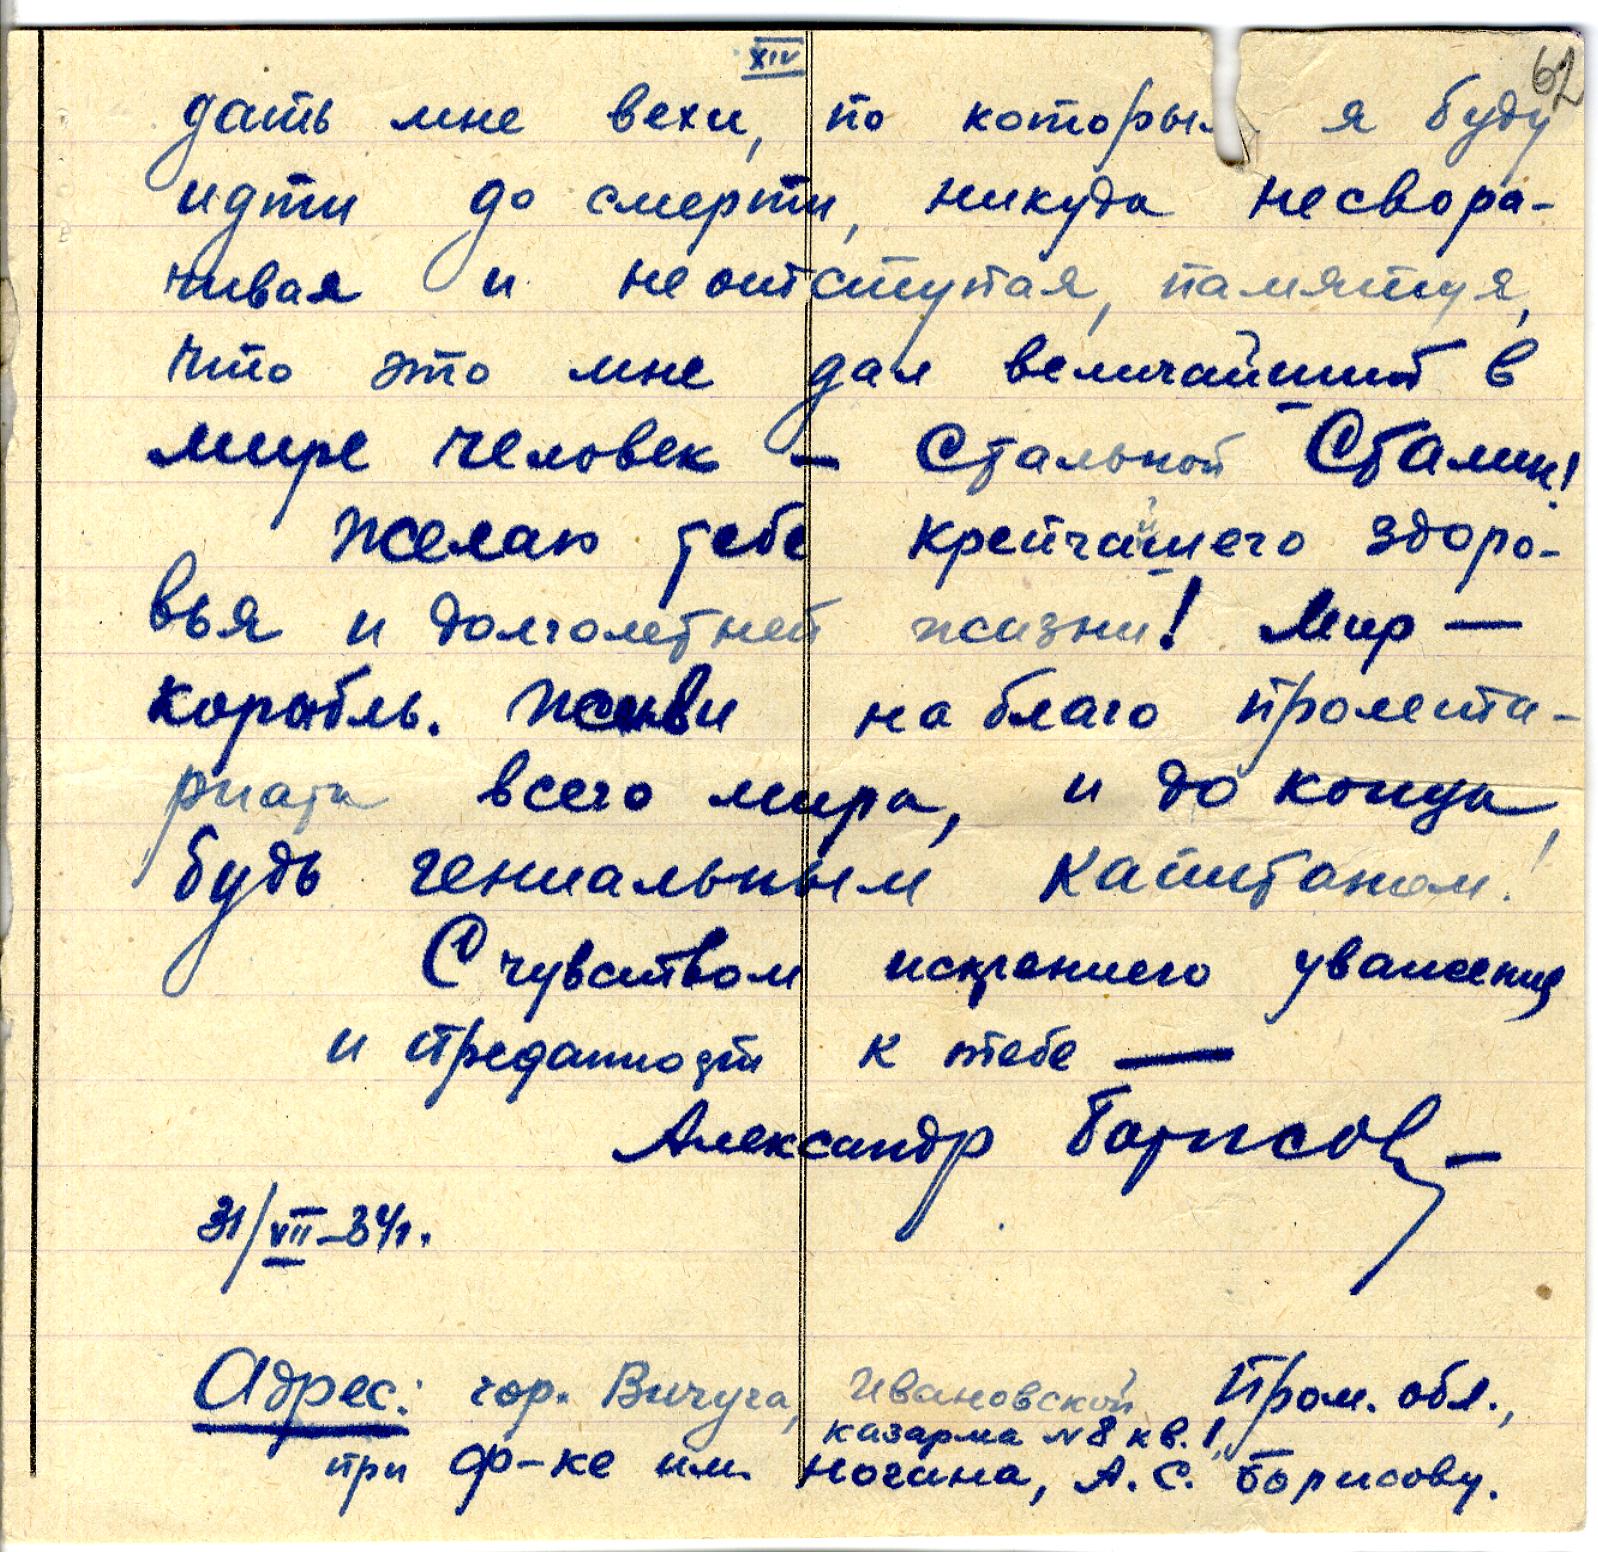 XIV
62
дать мне вехи, по которым я буду
идти до смерти, никуда несвора-
чивая и неотступая, памятуя,
что это мне дал величайший в
мире человек – Стальной Сталин!
Желаю тебе крепчайшего здоро-
вья и долголетней жизни! Мир —
корабль. Живи на благо пролета-
риата всего мира, и до конца,
будь гениальным капитаном!
С чувством искреннего уважения
и преданности к тебе —
Александр Борисов —
31/VII–34г.
Адрес: гор. Вичуга, Ивановской Пром. обл.,
казарма №8 кв. 1,
при ф-ке им. Ногина, А. С. Борисову.